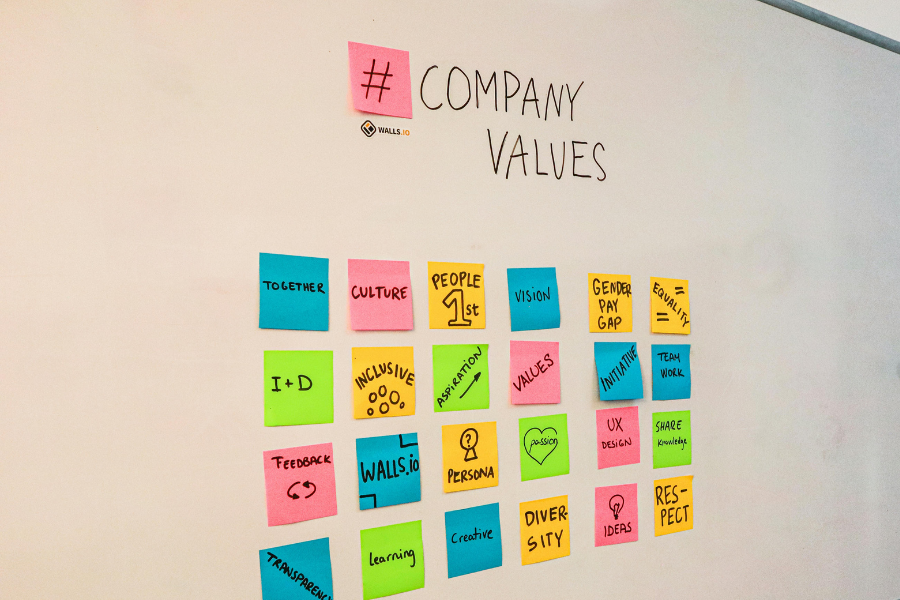 # COMPANY
WALLS.IO
VALUES
TOGETHER
CULTURE
PEOPLE
1st
VISION
GENDER
PAY
GAP
EQUALITY
I+D
INCLUSIVE
ASPIRATION
VALUES
INITIATIVE
TEAM
WORK
FEEDBACK
WALLS.io
?
PERSONA
passion
UX
DESIGN
SHARE
Knowledge
TRANSPARENCY
learning
Creative
DIVER-
SITY
IDEAS
RES-
PECT